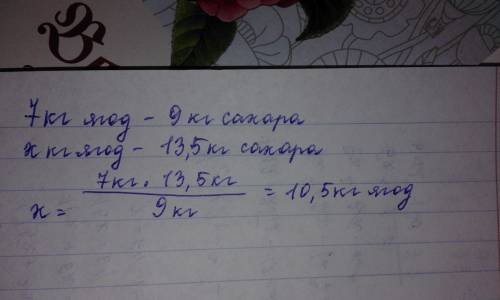 7кг ягод - 9 кг сахара
x кг ягод - 13,5 кг сахара
x = 7кг. 13,5 кг / 9 кг = 10,5 кг ягод